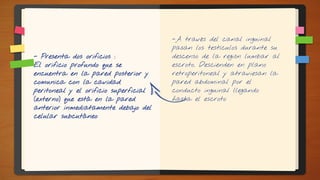 - Presenta dos orificios :
El orificio profundo que se
encuentra en la pared posterior y
comunica con la cavidad
peritoneal y el orificio superficial
(externo) que está en la pared
anterior inmediatamente debajo del
celular subcutáneo
-A través del canal inguinal
pasan los testículos durante su
descenso de la region lumbar al
escroto. Descienden en plano
retroperitoneal y atraviesan la
pared abdominal por el
conducto inguinal llegando
hasta el escroto